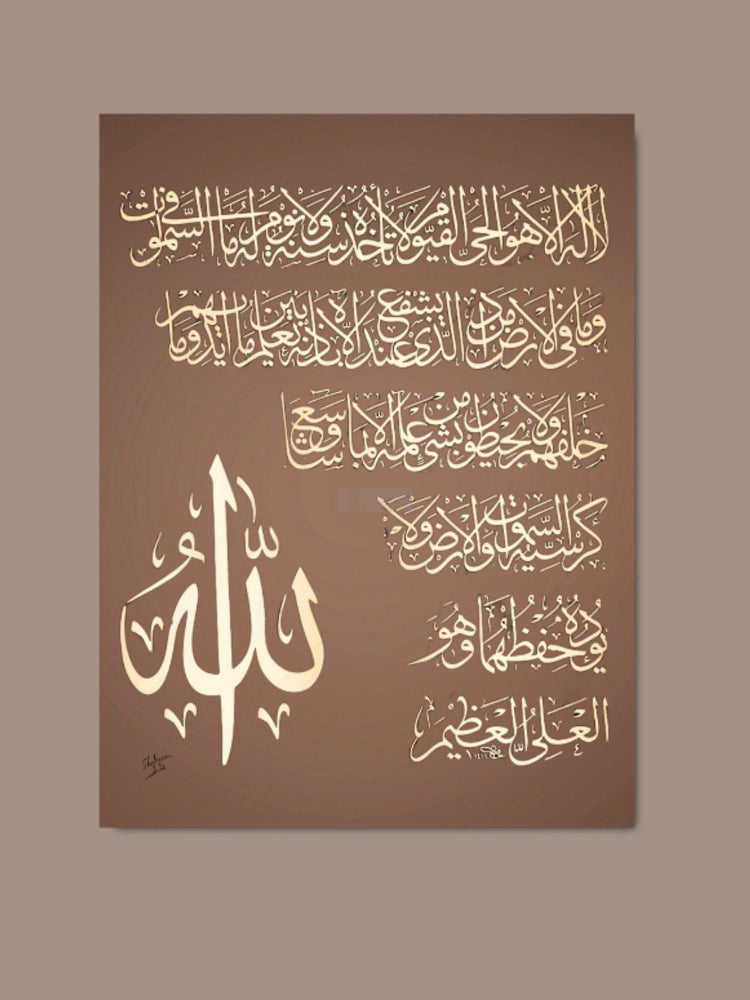 لَا اِلٰهَ اِلَّا هُوَ الْحَىُّ الْقَيُّوْمُ لَا تَأْخُذُهُ سِنَةٌ وَلَا نَوْمٌ لَهُ مَا فِى السَّمٰوٰتِ
وَمَا فِى الْاَرْضِ مَنْ ذَا الَّذِىْ يَشْفَعُ عِنْدَهُ اِلَّا بِاِذْنِهٖ يَعْلَمُ مَا بَيْنَ اَيْدِيْهِمْ وَمَا
خَلْفَهُمْ وَلَا يُحِيْطُوْنَ بِشَىْءٍ مِنْ عِلْمِهٖ اِلَّا بِمَا شَاءَ وَسِعَ
كُرْسِيُّهُ السَّمٰوٰتِ وَالْاَرْضَ وَلَا
يَؤُدُهُ حِفْظُهُمَا وَهُوَ
الْعَلِىُّ الْعَظِيْمُ
اللّٰهُ